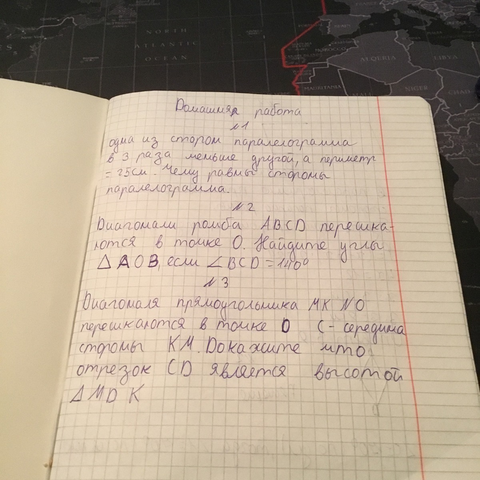 NORTH
ATLANTIC
OCEAN
ALGERIA
LIBYA
Домашняя работа
№1
одна из сторон паралелограмма
в 3 раза меньше другой, а периметр
= 25см. Чему равны стороны
паралелограмма.
№2
Диагонали ромба ABCD перешка-
ются в точке O. Найдите углы
△ AOB, если ∠BCD = 140°
№3
Диагоналя прямоугольника MKNO
перешкаются в точке D C - середина
стороны KM. Докажите что
отрезок CD является высотой
△MDK